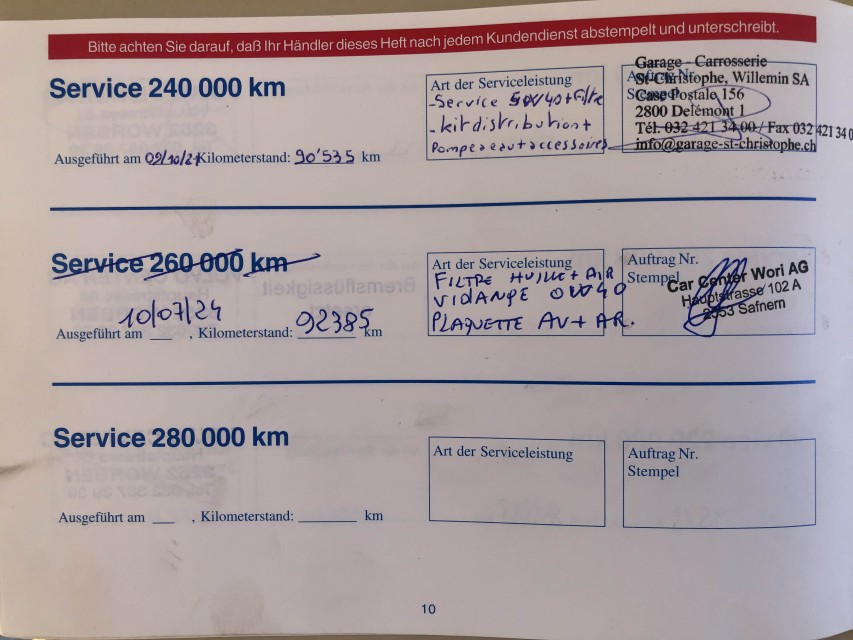 Bitte achten Sie darauf, daß Ihr Händler dieses Heft nach jedem Kundendienst abstempelt und unterschreibt.
Service 240 000 km
Ausgeführt am 09/10/21 Kilometerstand: 90'535 km
Art der Serviceleistung
-Service 5W40+Filtre
-kit distribution+
Pompe a eau+accessoires
Auftrag Nr.
Stempel
Garage - Carrosserie
St-Christophe, Willemin SA
Case Postale 156
2800 Delémont 1
Tél. 032 421 34 00 / Fax 032 421 34 0
info@garage-st-christophe.ch
Service 260 000 km
Ausgeführt am 10/07/24, Kilometerstand: 92385 km
Art der Serviceleistung
FILTRE HUILE + AIR
VIDANPE 0W40
PLAQUETTE AV + AR.
Auftrag Nr.
Stempel
Car Center Wori AG
Hauptstrasse 102 A
2553 Safnern
Service 280 000 km
Ausgeführt am , Kilometerstand: km
Art der Serviceleistung
Auftrag Nr.
Stempel
10